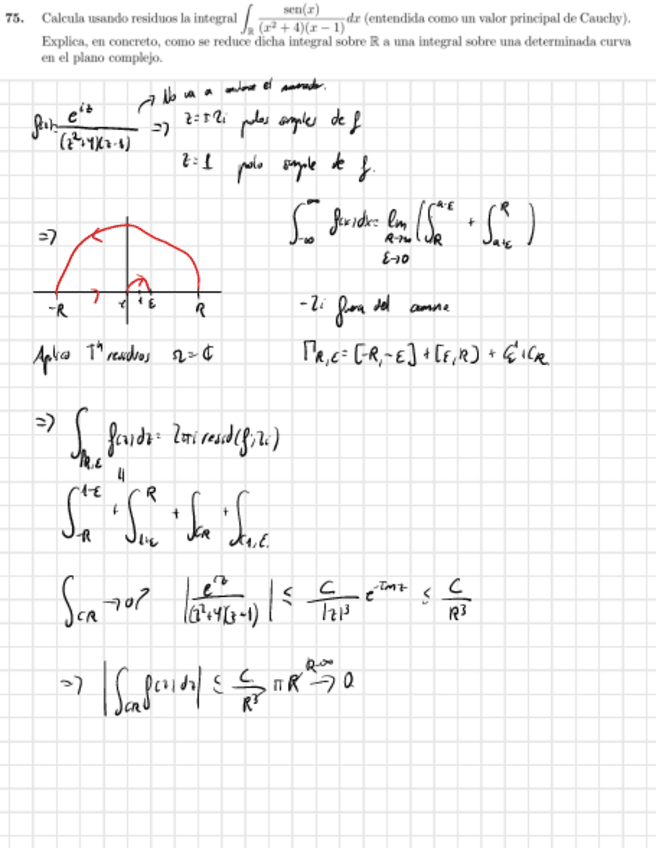 75. Calcula usando residuos la integral ∫_ℝ sen(x)/((x²+4)(x−1)) dx (entendida como un valor principal de Cauchy).
Explica, en concreto, como se reduce dicha integral sobre ℝ a una integral sobre una determinada curva
en el plano complejo.
→ No va a el
f(z)= e^{iz}/((z²+4)(z-1)) => z=±2i polos simples de f
z=1 polo simple de f.
=>
∫_{-∞}^{∞} f(x)dx= lim_{R→∞ ε→0} (∫_{-R}^{1-ε} + ∫_{1+ε}^{R})
-R 1 ε R
-2i fuera del camino
Aplico Tª residuos Ω=ℂ Γ_{R,ε}=[-R,-ε]+[ε,R]+C_ε+C_R
=> ∫_{Γ_{R,ε}} f(z)dz= 2πi resid(f;2i)
∫_{-R}^{1-ε} + ∫_{1+ε}^{R} + ∫_{CR} + ∫_{C1,ε}
∫_{CR} →0? |e^{iz}/((z²+4)(z-1))| ≤ C/|z|³ e^{-Imz} ≤ C/R³
=> |∫_{CR} f(z)dz| ≤ C/R³ πR →^{R→∞} 0